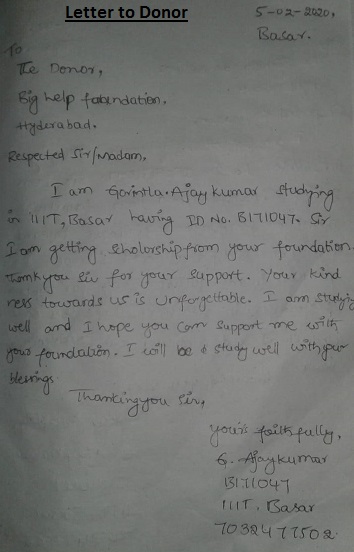 Letter to Donor
5-02-2020,
Basar.
To
The Donor,
Big help foundation.
Hyderabad.
Respected Sir/Madam,
I am Gorintla. Ajay kumar studying
in IIIT, Basar having ID No. B171047. Sir
I am getting scholorship from your foundation
Thankyou sir for your support. Your kind
ness towards us is unforgettable. I am studying
well and I hope you can support me with
your foundation. I will be study well with your
blessings
Thankingyou Sir,
your's faithfully,
G. Ajaykumar
B171047
IIIT. Basar
7032477502.